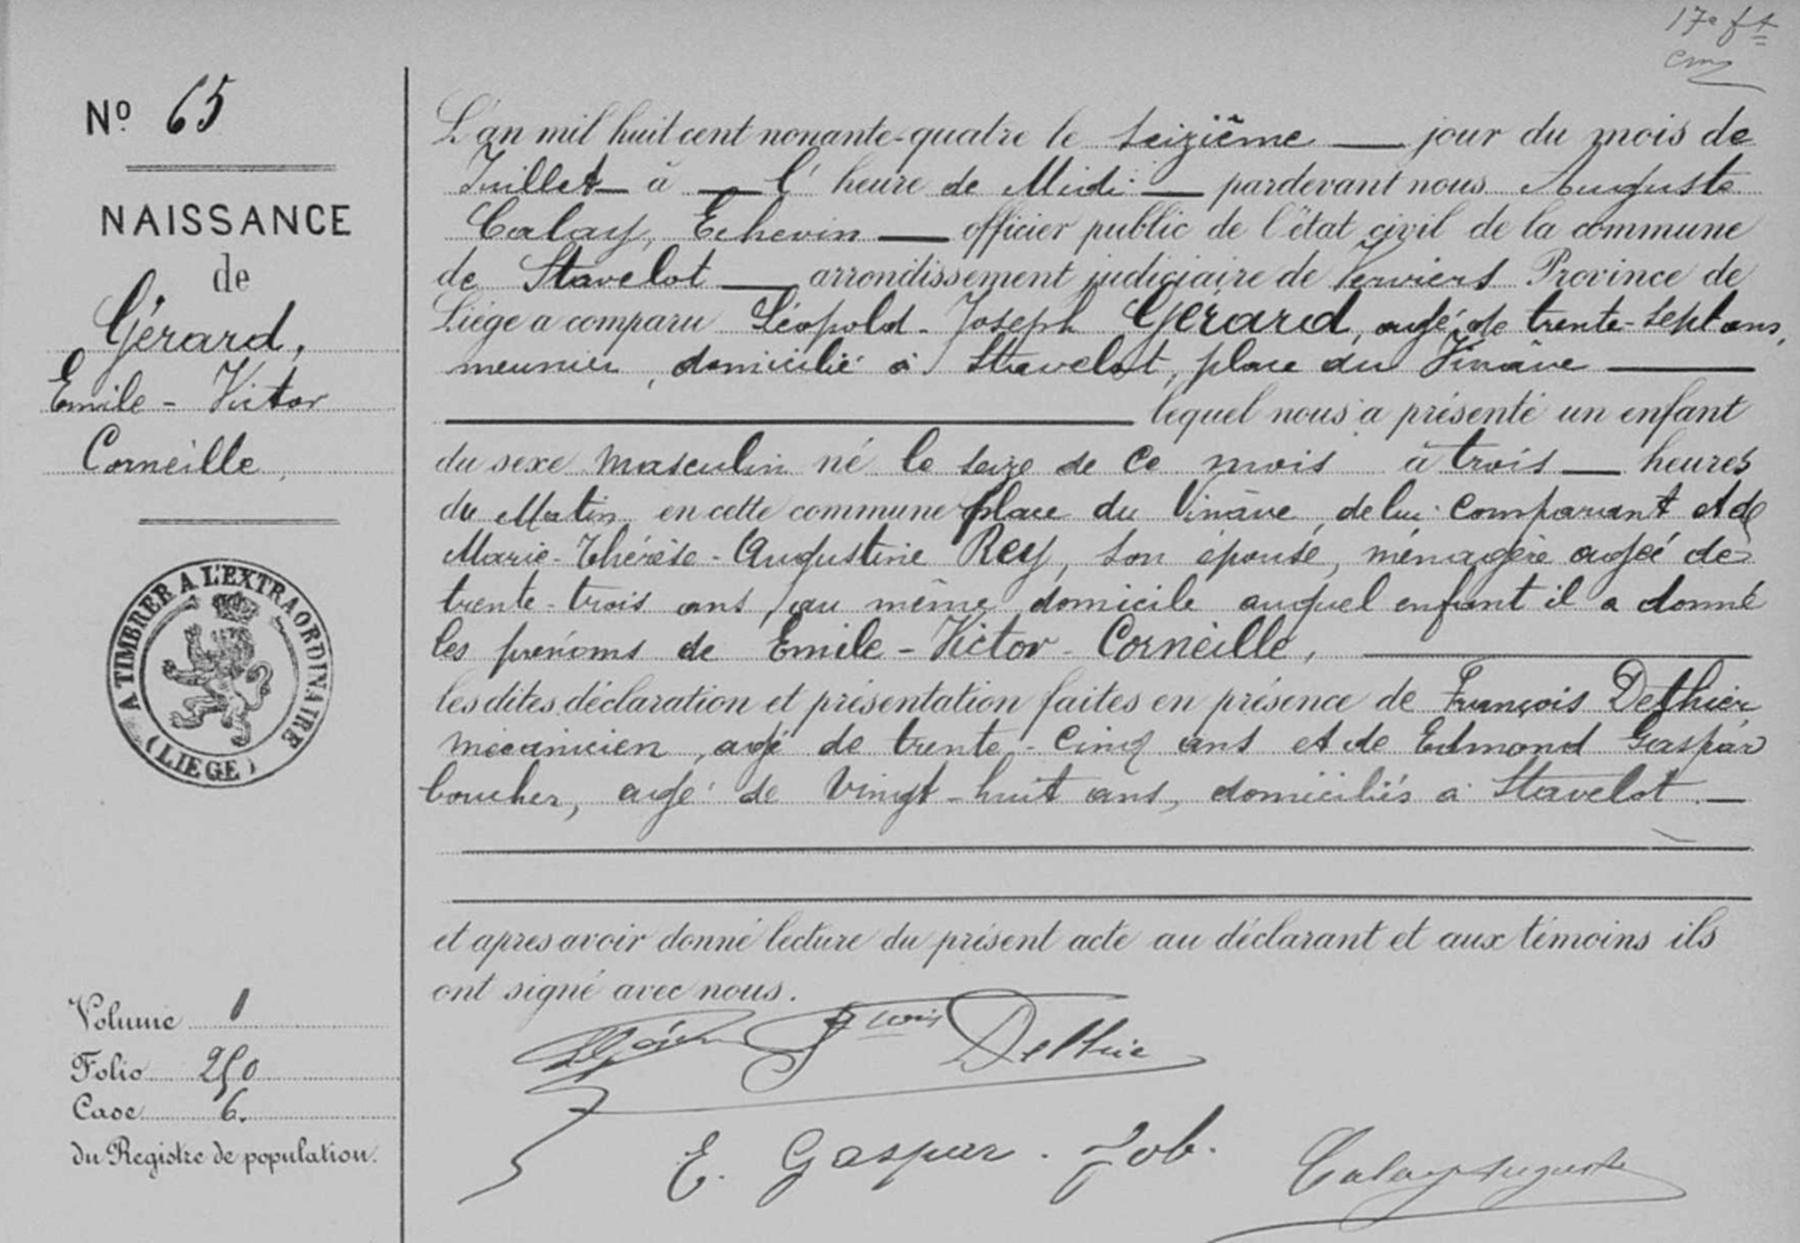 17e ft
N° 65
NAISSANCE
de
Gérard,
Emile - Victor
Corneille,
A TIMBRER A L'EXTRAORDINAIRE
(LIEGE)
Volume 1
Folio 250
Case 6.
du Registre de population.
L'an mil huit cent nonante-quatre le seizième — jour du mois de
Juillet à — l' heure de Midi — pardevant nous Auguste
Calay, Echevin — officier public de l'état civil de la commune
de Stavelot — arrondissement judiciaire de Verviers Province de
Liège a comparu Léopold - Joseph Gérard, agé de trente-sept ans,
meunier, domicilié à Stavelot, place du Vinâve —
— lequel nous a présenté un enfant
du sexe masculin né le seize de ce mois à trois — heures
du Matin en cette commune place du Vinâve, de lui comparant et de
Marie - Thérèse - Augustine Rey, son épouse, ménagère agée de
trente - trois ans, au même domicile auquel enfant il a donné
les prénoms de Emile - Victor - Corneille, —
les dites déclaration et présentation faites en présence de François Dethier,
mécanicien, agé de trente - cinq ans et de Edmond Gaspar
boucher, agé de vingt - huit ans, domiciliés à Stavelot. —
et apres avoir donné lecture du présent acte au déclarant et aux témoins ils
ont signé avec nous.
Dethier
E. Gaspar - Job.
Calay Auguste